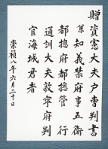 贈資憲大夫戶曹判書
兼知義禁府事五衛
都摠府都摠管 行
通訓大夫敦寧府判
官海城君者
崇禎八年六月二十日